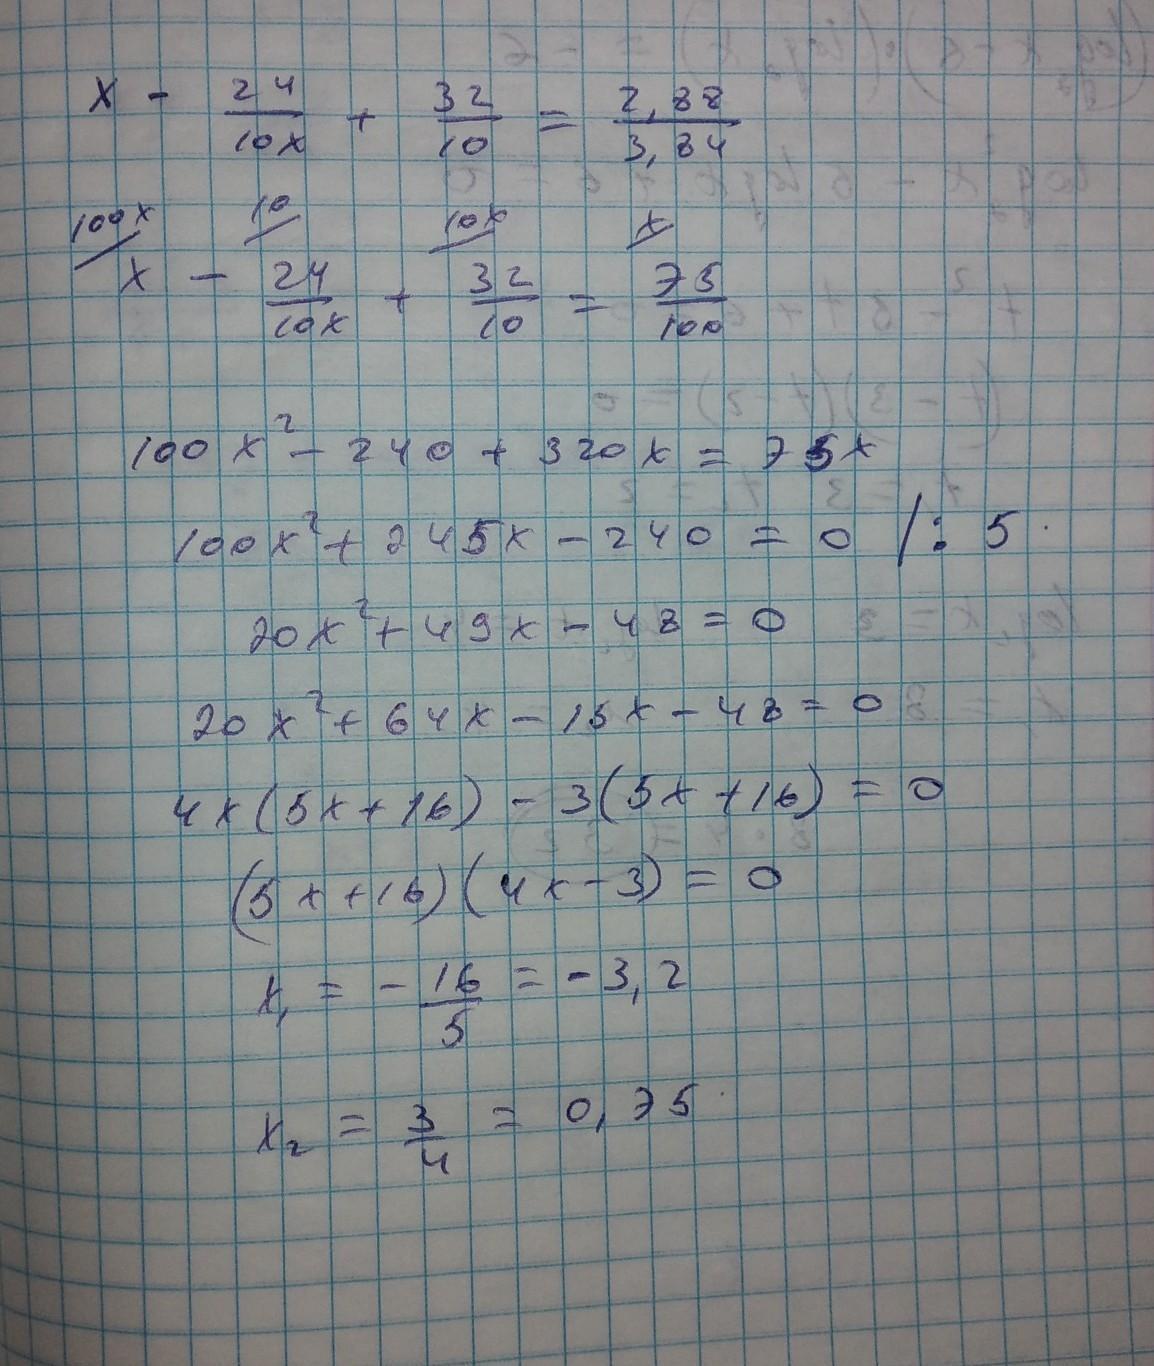 x - 24/10x + 32/10 = 2,88/3,84
100x/ 10/ 10x/ x/
x - 24/10x + 32/10 = 75/100
100x² - 240 + 320x = 75x
100x² + 245x - 240 = 0 /: 5
20x² + 49x - 48 = 0
20x² + 64x - 15x - 48 = 0
4x(5x+16) - 3(5x+16) = 0
(5x+16)(4x-3) = 0
x₁ = - 16/5 = -3,2
x₂ = 3/4 = 0,75